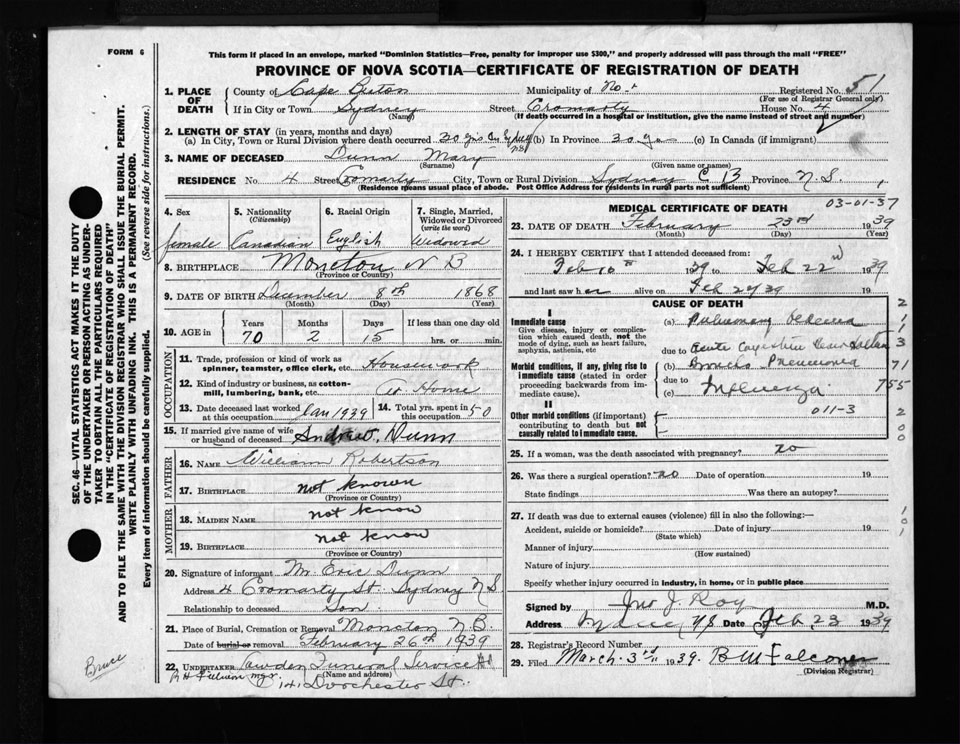 FORM 6
This form if placed in an envelope, marked "Dominion Statistics—Free, penalty for improper use $300," and properly addressed will pass through the mail "FREE"
PROVINCE OF NOVA SCOTIA—CERTIFICATE OF REGISTRATION OF DEATH
1. PLACE OF DEATH County of Cape Breton Municipality of Registered No. 51
(For use of Registrar General only)
If in City or Town Sydney Street Cromarty House No. 4
(Name) (If death occurred in a hospital or institution, give the name instead of street and number)
2. LENGTH OF STAY (in years, months and days)
(a) In City, Town or Rural Division where death occurred 20 yrs (b) In Province 30 (c) In Canada (if immigrant)
3. NAME OF DECEASED Dunn Mary
(Surname) (Given name or names)
RESIDENCE No. 4 Street Cromarty City, Town or Rural Division Sydney C B Province N.S.
(Residence means usual place of abode. Post Office Address for residents in rural parts not sufficient)
4. Sex female
5. Nationality (Citizenship) Canadian
6. Racial Origin English
7. Single, Married, Widowed or Divorced (write the word) Widowed
8. BIRTHPLACE Moncton N B
(Province or Country)
9. DATE OF BIRTH December 8th 1868
(Month) (Day) (Year)
10. AGE in Years Months Days If less than one day old
70 2 15 hrs. or min.
OCCUPATION
11. Trade, profession or kind of work as spinner, teamster, office clerk, etc. Housework
12. Kind of industry or business, as cotton-mill, lumbering, bank, etc. At Home
13. Date deceased last worked at this occupation Jan 1939
14. Total yrs. spent in 50
15. If married give name of wife or husband of deceased Andrew Dunn
FATHER
16. NAME William Robertson
17. BIRTHPLACE not known
(Province or Country)
MOTHER
18. MAIDEN NAME not know
19. BIRTHPLACE not know
(Province or Country)
20. Signature of informant Mr. Eric Dunn
Address 4 Cromarty St. Sydney N S
Relationship to deceased Son
21. Place of Burial, Cremation or Removal Moncton N.B.
Date of burial or removal February 26th 1939
22. UNDERTAKER Funeral Service
(Name and address)
141 Dorchester St.
03-01-37
MEDICAL CERTIFICATE OF DEATH
23. DATE OF DEATH February 23rd 1939
(Month) (Day) (Year)
24. I HEREBY CERTIFY that I attended deceased from:
Feb 16th 1939 to Feb 22nd 1939
and last saw her alive on Feb 22 39 19
CAUSE OF DEATH
I
Immediate cause (a) Pulmonary Oedema
Give disease, injury or complication which caused death, not the mode of dying, such as heart failure, asphyxia, asthenia, etc
due to Acute Congestive Heart Failure
Morbid conditions, if any, giving rise to immediate cause (stated in order proceeding backwards from immediate cause).
(b) Broncho Pneumonia
due to
(c) Influenza
II
Other morbid conditions (if important) contributing to death but not causally related to immediate cause.
011-3
25. If a woman, was the death associated with pregnancy? no
26. Was there a surgical operation? no Date of operation 19
State findings Was there an autopsy?
27. If death was due to external causes (violence) fill in also the following:—
Accident, suicide or homicide? Date of injury 19
(State which)
Manner of injury
(How sustained)
Nature of injury
Specify whether injury occurred in industry, in home, or in public place
Signed by Jno J. Roy M.D.
Address Date Feb 23 1939
28. Registrar's Record No.
29. Filed March 3rd 1939. B M Falconer
(Division Registrar)
SEC. 46—VITAL STATISTICS ACT MAKES IT THE DUTY OF THE UNDERTAKER OR PERSON ACTING AS UNDERTAKER TO OBTAIN ALL THE PARTICULARS REQUIRED IN THE "CERTIFICATE OF REGISTRATION OF DEATH" AND TO FILE THE SAME WITH THE DIVISION REGISTRAR WHO SHALL ISSUE THE BURIAL PERMIT.
WRITE PLAINLY WITH UNFADING INK. THIS IS A PERMANENT RECORD.
Every item of information should be carefully supplied. (See reverse side for instructions.)
Bruce